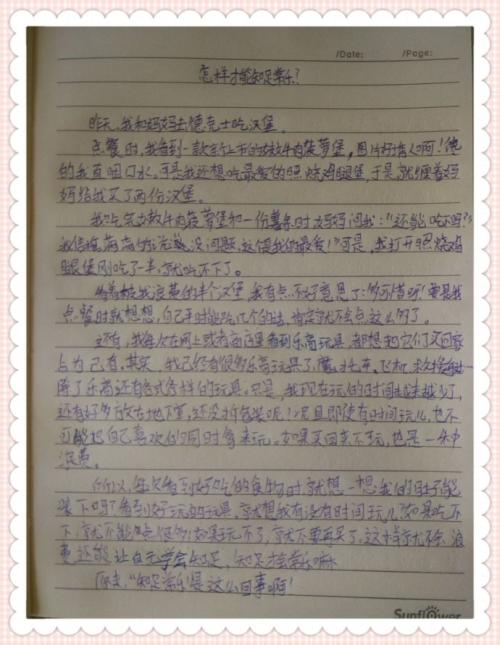 /Date: /Page:
怎样才能知足常乐?
昨天,我和妈妈去德克士吃汉堡。
点餐时,我看到一款刚上市的牛肉菠萝堡,图片好诱人啊!馋
的我直咽口水,可是我还想吃最爱的照烧鸡腿堡,于是就缠着妈
妈给我买了两份汉堡。
我吃完牛肉菠萝堡和一份薯条时妈妈问我:“还能吃吗?”
我信心满满的说没问题,这是我的最爱!”可是,我打开照烧鸡
腿堡刚吃了一半,就吃不下了。
看着被我浪费的半个汉堡,我有点不好意思了:多可惜呀!要是我
点餐时就想想,自己平时能吃几个的话,肯定就不会点这么多了。
还有,我每次在网上或者商店里看到乐高玩具,都想把它们买回家
占为己有,其实,我已经有很多乐高玩具了,摩托车、飞机、
除了乐高还有各式各样的玩具。只是,我现在玩的时间越来越少了,
还有好多放在地下室,还没拆包装呢!况且即使有时间玩儿,也不
可能把自己喜欢的同时拿来玩。如果买回来不玩,也是一种
浪费。
所以,每次看到好吃的食物时,就想一想:我的肚子能
装下吗?看到好玩的玩具,就想我有没有时间玩儿?如果吃不
下,就不能点很多;如果玩不了,就不要再买了。这样就不会浪
费还能让自己学会知足,知足才能常乐嘛
原来,“知足常乐”是这么回事啊!
Sunflower